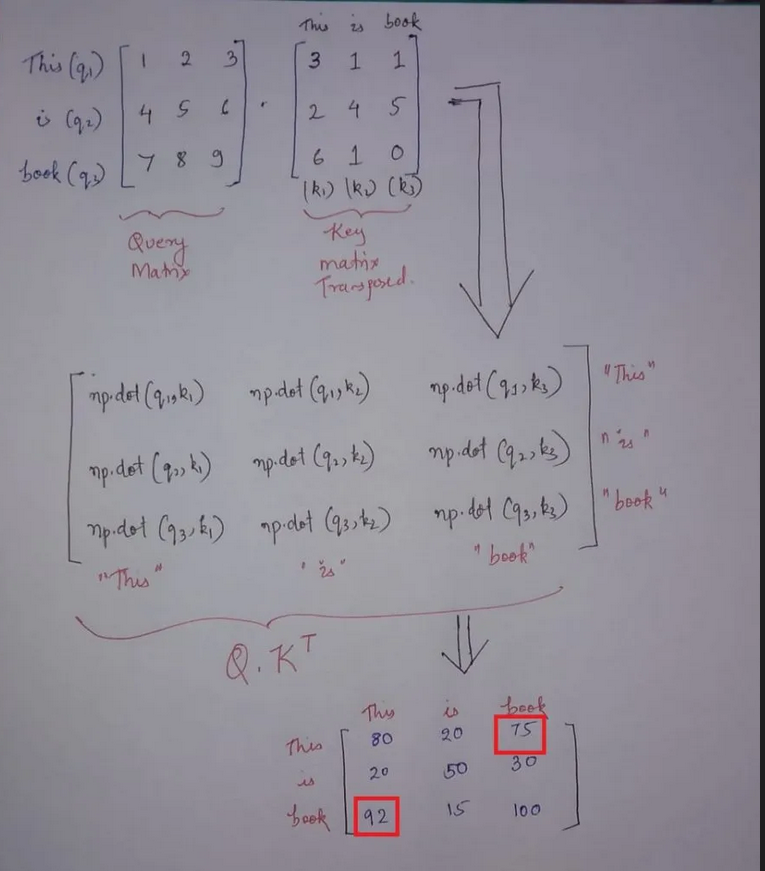 This is book
This (q1) 1 2 3 3 1 1
is (q2) 4 5 6 . 2 4 5
book (q3) 7 8 9 6 1 0
(k1) (k2) (k3)
Query Matrix
Key matrix Transposed.
np.dot (q1, k1) np.dot (q1, k2) np.dot (q1, k3) "This"
np.dot (q2, k1) np.dot (q2, k2) np.dot (q2, k3) "is"
np.dot (q3, k1) np.dot (q3, k2) np.dot (q3, k3) "book"
"This" "is" "book"
Q.K^T
This is book
This 80 20 75
is 20 50 30
book 92 15 100